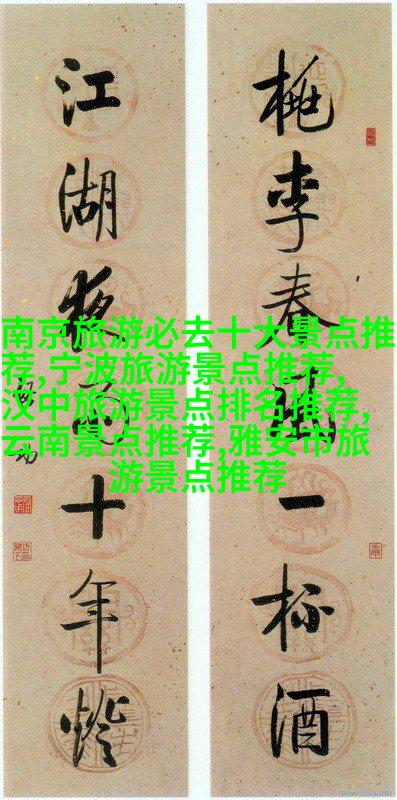 桃李春风一杯酒
江湖夜雨十年灯
南京旅游必去十大景点推
荐,宁波旅游景点推荐,
汉中旅游景点排名推荐,
云南景点推荐,雅安市旅
游景点推荐